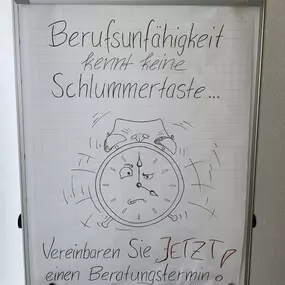 Berufsunfähigkeit
kennt keine
Schlummertaste...
Vereinbaren Sie JETZT
einen Beratungstermin!